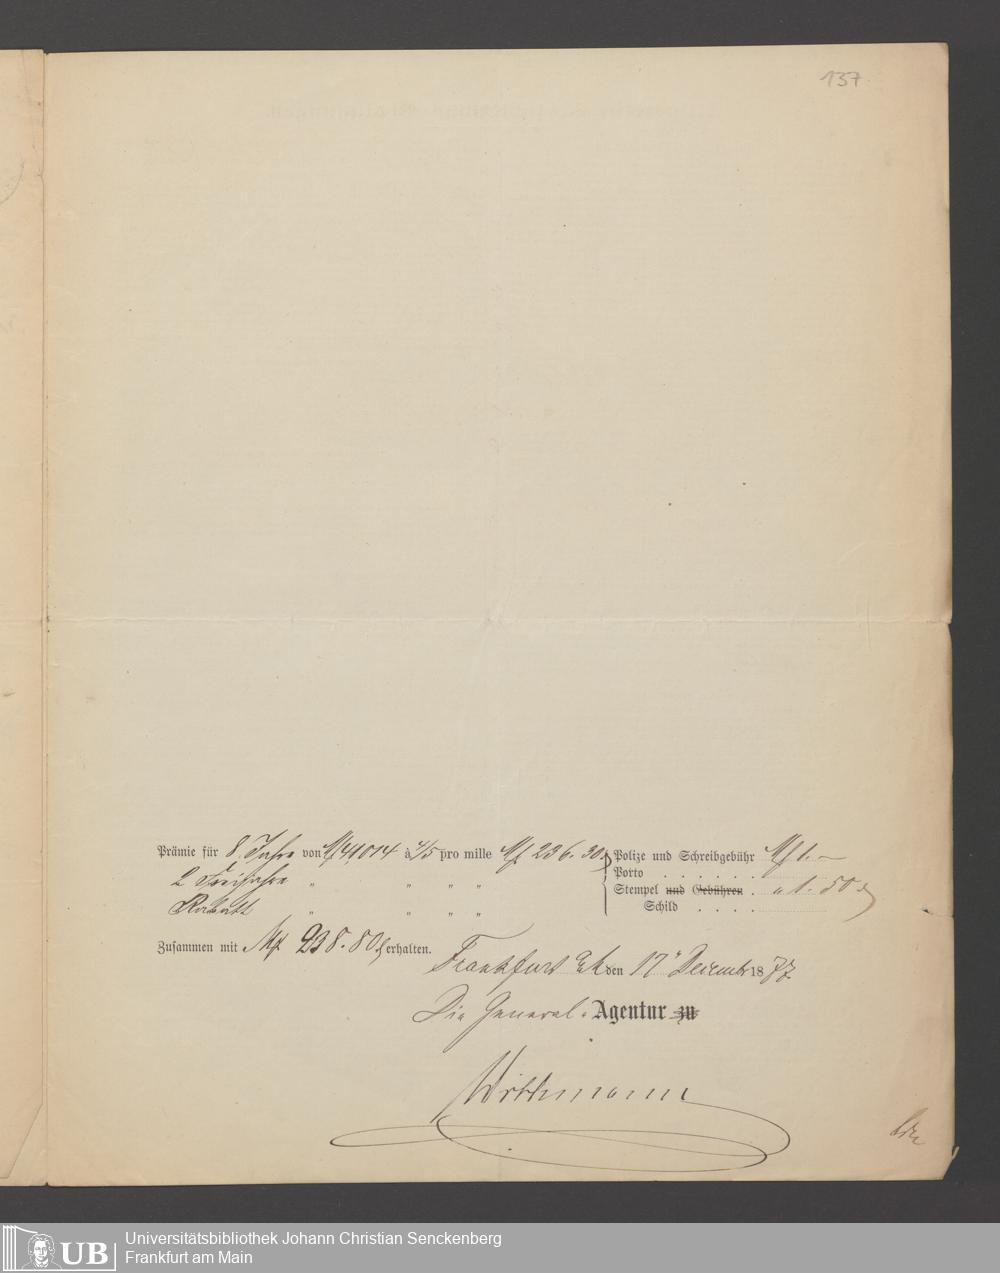 137
Prämie für 8 Jahre von Mk 41014 à 4/5 pro mille Mk 236.30.
2 Freijahre " " " "
Rabatt " " " "
Polize und Schreibgebühr Mk 1.—
Porto . . . . . .
Stempel und Gebühren . „ 1.50
Schild . . . .
Zusammen mit Mk 238.80 erhalten.
Frankfurt a/M den 17 Decemb 1877.
Die General-Agentur zu
UB Universitätsbibliothek Johann Christian Senckenberg
Frankfurt am Main